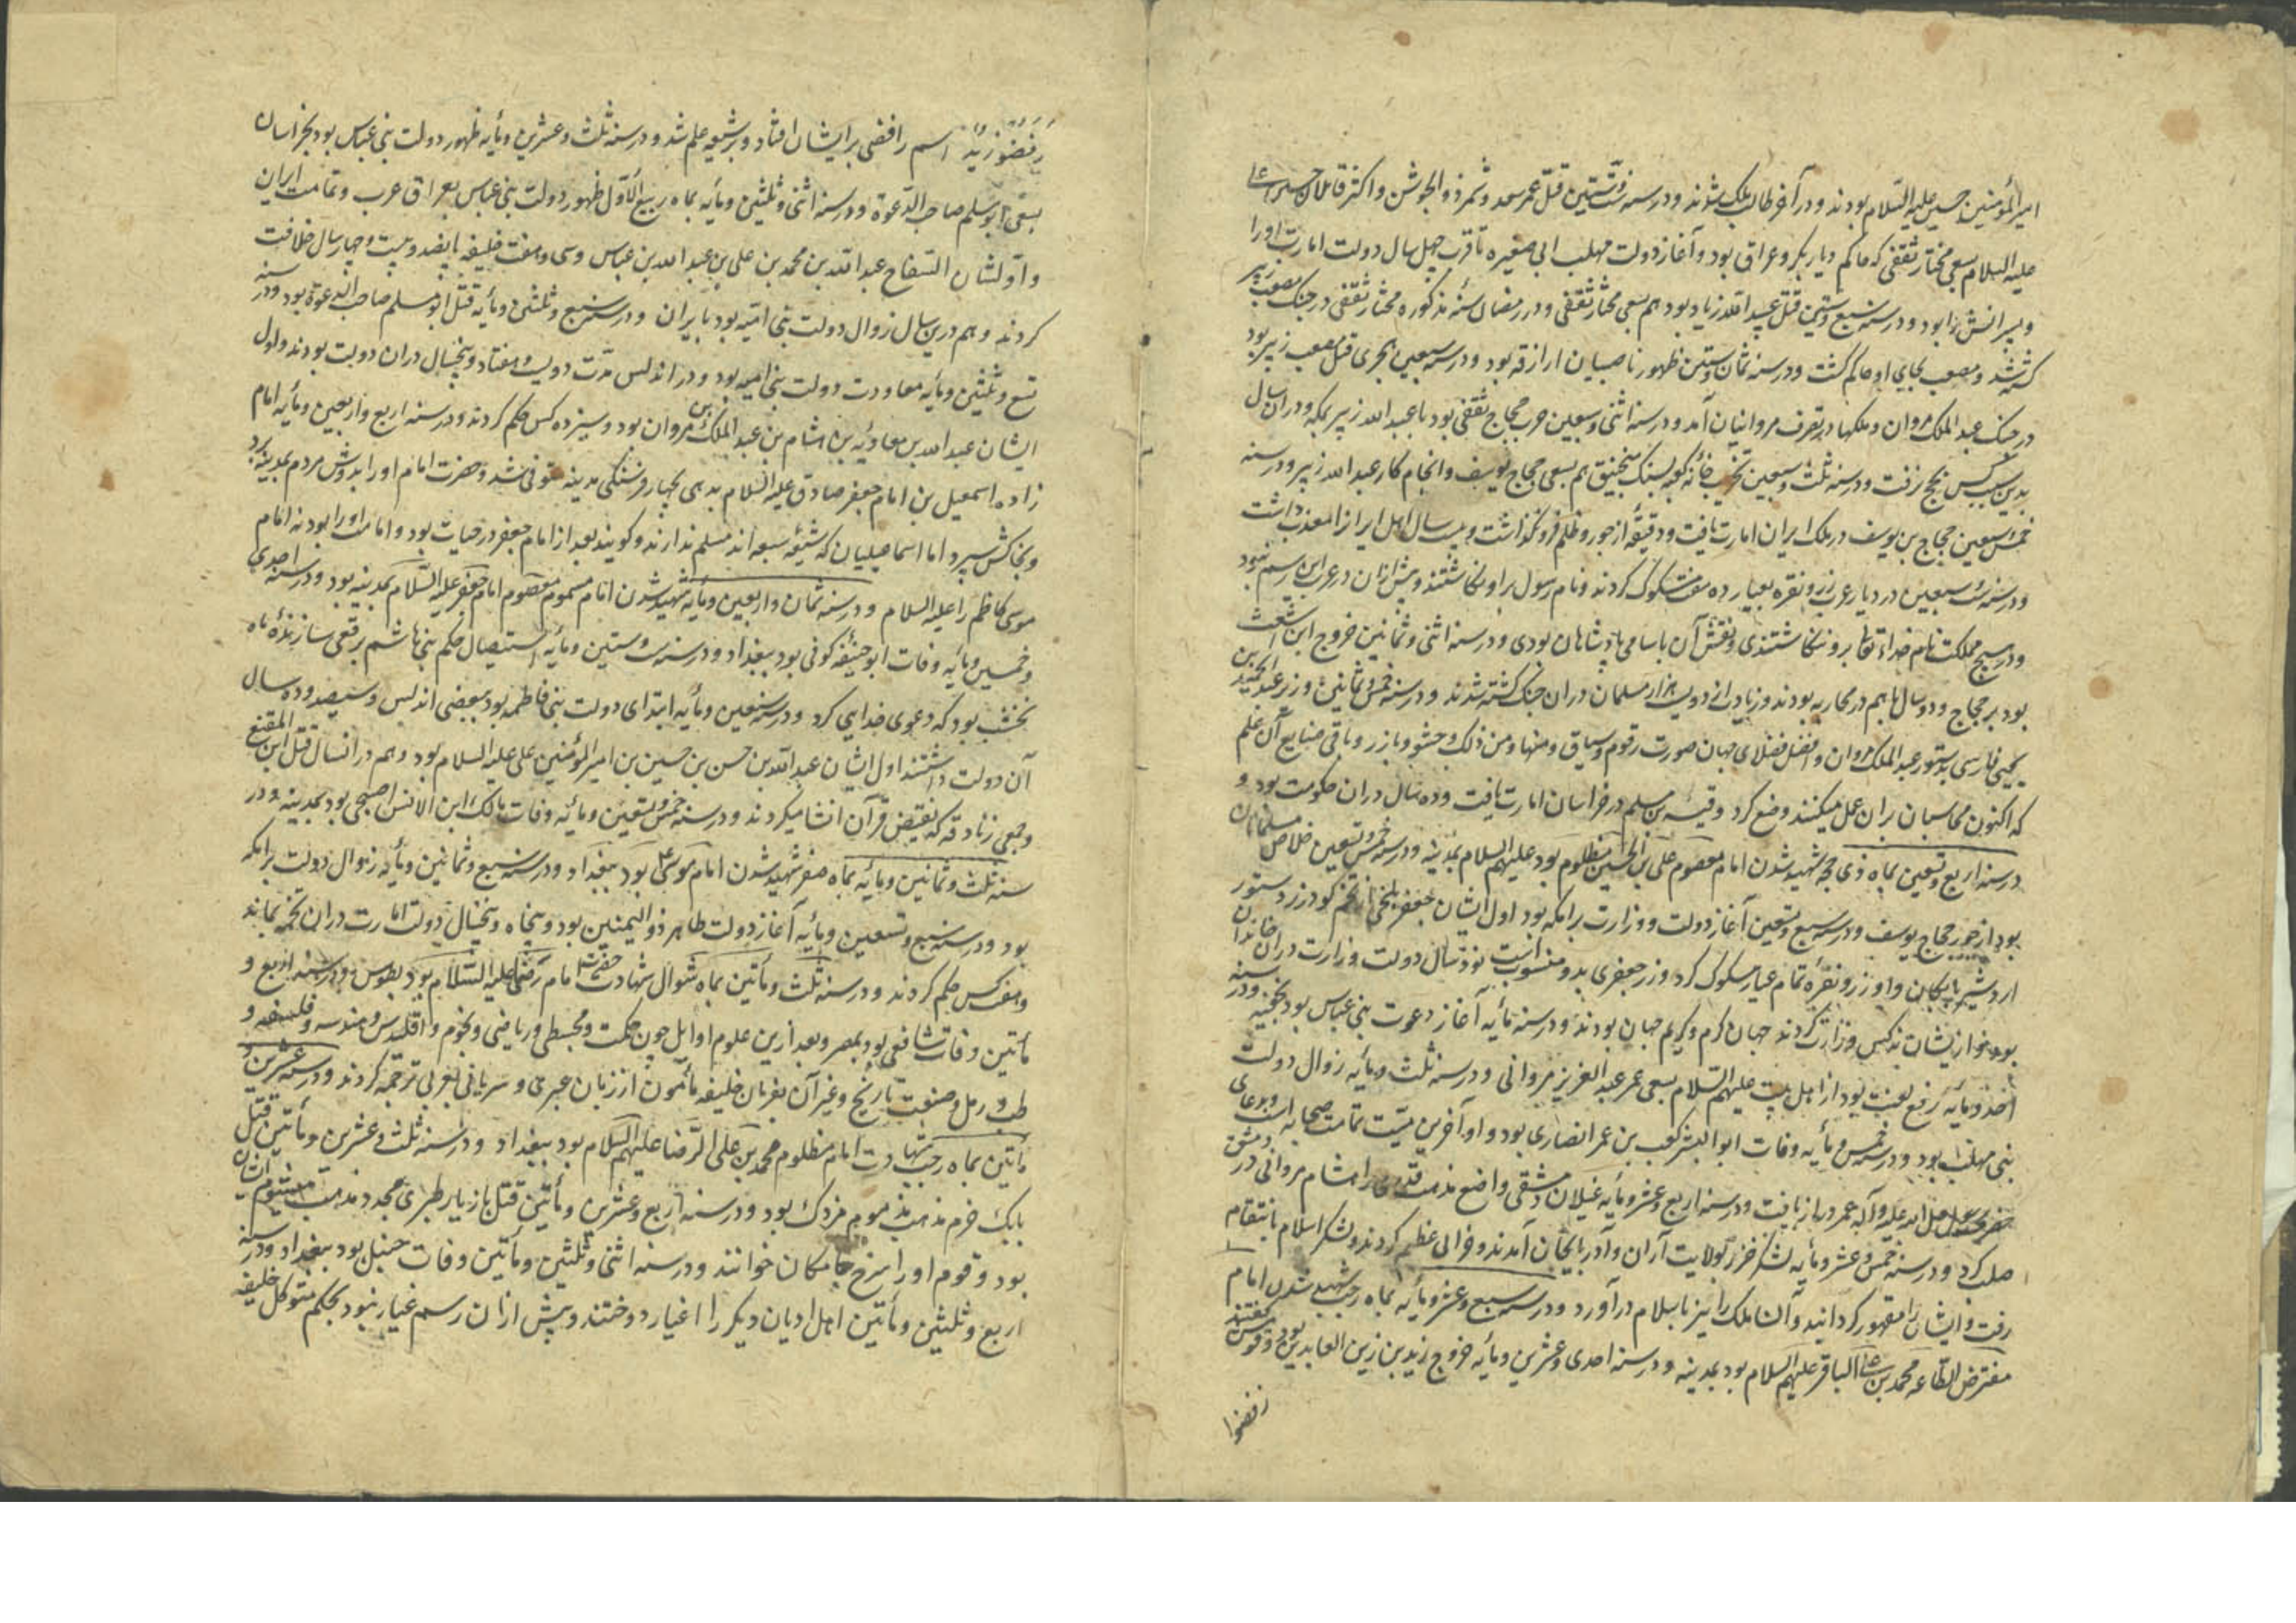 امیر المؤمنین حسین علیه السلام بودند و در آخر طالب ملک شدند و در سنه ست و ستین قتل عمر سعد و شمر ذو الجوشن و اکثر قاتلان حسین
علیه السلام بسعی مختار ثقفی که حاکم دیار بکر و عراق بود و آغاز دولت مهلب ابی صفیره تا قرب چهل سال دولت امارت او را
و پسرانش را بود و در سنه سبع و ستین قتل عبید الله زیاد بود هم بسعی مختار ثقفی و در رمضان سنهٔ مذکوره مختار ثقفی در جنک مصعب زبیر
کشته شد و مصعب بجای او حاکم کشت و در سنه ثمان و ستین ظهور ناصبیان ازارقه بود و در سنه سبعین هجری قتل مصعب زبیر بود
در جنک عبد الملک مروان و ملکها در تصرف مروانیان آمد و در سنه اثنی و سبعین حرب حجاج ثقفی بود با عبد الله زبیر بمکه و در ان سال
بدین سبب کس بحج نرفت و در سنه ثلث و سبعین تخریب خانهٔ کعبه بسنک منجنیق هم بسعی حجاج یوسف و انجام کار عبد الله زبیر و در سنه
خمس و سبعین حجاج بن یوسف در ملک ایران امارت یافت و دقیقهٔ از جور و ظلم فرو نکذاشت و بیست سال اهل ایران را معذب داشت
و در سنه ست و سبعین در دیار عرب زر و نقره بعیار ده هفت مسکوک کردند و نام رسول بر او نکاشتند و پیش از ان در عرب این رسم نبود
و در هیچ مملکت نام خداء تعالی بر و ننکاشتندی و نقش آن باسامی پادشاهان بودی و در سنه اثنی و ثمانین خروج ابن اشعث
بود بر حجاج و دو سال با هم در محاربه بودند و زیادت از دویست هزار مسلمان در ان جنک کشته شدند و در سنه خمس و ثمانین وزیر عبد الحمید بن
یحیی فارسی بدستور عبد الملک مروان و افضل فضلای جهان صورت رقوم و سیاق و منها و من ذلک و حشو و بارز و باقی صنایع آن علم
که اکنون محاسبان بران عمل میکنند وضع کرد و قتیبه بن مسلم در خراسان امارت یافت و ده سال در ان حکومت بود و
در سنه اربع و تسعین بماه ذی حجه شهید شدن امام معصوم علی بن الحسین مظلوم بود علیهم السلام بمدینه و در سنه خمس و تسعین خلاص مسلمانان
بود از جور حجاج یوسف و در سنه سبع و تسعین آغاز دولت و وزارت برامکه بود اول ایشان جعفر بلخی از تخم کودرز دستور
اردشیر بابکان و او زر و نقره تمام عیار مسکوک کرد و زر جعفری بدو منسوبست نود سال دولت وزارت در ان خاندان
بود و از یشان نه کس وزارت کردند جهان کرم و کریم جهان بودند و در سنه مأیه آغاز دعوت بنی عباس بود بخفیه و در سنه
احدی و مأیه رفع لعنت بود از اهل بیت علیهم السلام بسعی عمر عبد العزیز مروانی و در سنه ثلث و مأیه زوال دولت
بنی مهلب بود و در سنه خمس و مأیه وفات ابو الیشر کعب بن عمر انصاری بود و او آخرین میت تمامت صحابه است و بدعای
حضرت رسول صلی الله علیه و آله عمر دراز یافت و در سنه اربع و عشر و مأیه غیلان دمشقی واضع مذهب قدری را هشام مروانی در دمشق
صلب کرد و در سنه خمس و عشر و مأیه لشکر خزر بولایت آران و آذربایجان آمدند و خرابی عظیم کردند و لشکر اسلام بانتقام
رفت و ایشان را مقهور کردانید و آن ملک را نیز باسلام در آورد و در سنه سبع و عشر و مأیه بماه رجب شهید شدن امام
مفترض الطاعه محمد بن علی الباقر علیهم السلام بود بمدینه و در سنه احدی و عشرین و مأیه خروج زید بن زین العابدین بود و قومش کفتند
رفضوا
رفضوا زید اسم رافضی بر ایشان افتاد و بر شیعه علم شد و در سنه ثلث و عشرین و مأیه ظهور دولت بنی عباس بود بخراسان
بسعی ابو مسلم صاحب الدعوة و در سنه اثنی و ثلثین و مأیه بماه ربیع الاول ظهور دولت بنی عباس بعراق عرب و تمامت ایران
و اولشان السفاح عبد الله بن محمد بن علی بن عبد الله بن عباس و سی و هفت خلیفه پانصد و بیست و چهار سال خلافت
کردند و هم درین سال زوال دولت بنی امیه بود بایران و در سنه سبع و ثلثین و مأیه قتل ابو مسلم صاحب الدعوة بود و در سنه
تسع و ثلثین و مأیه معاودت دولت بنی امیه بود و در اندلس مدت دویست و هفتاد و پنجسال در ان دولت بودند و اول
ایشان عبد الله بن معاویه بن هشام بن عبد الملک بن مروان بود و سیزده کس حکم کردند و در سنه اربع و اربعین و مأیه امام
زاده اسمعیل بن امام جعفر صادق علیه السلام بدهی بچهار فرسنکی مدینه متوفی شد و حضرت امام او را بدوش مردم بمدینه برد
و بخاکش سپرد اما اسماعیلیان که شیعهٔ سبعه اند مسلم ندارند و کویند بعد از امام جعفر در حیات بود و امامت او را بود نه امام
موسی کاظم را علیه السلام و در سنه ثمان و اربعین و مأیه شهید شدن امام مسموم معصوم امام جعفر علیه السلام بمدینه بود و در سنه احدی
و خمسین و مأیه وفات ابو حنیفه کوفی بود ببغداد و در سنه ست و ستین و مأیه استیصال حکم بنی هاشم برقعی سازنده ماه
نخشب بود که دعوی خدایی کرد و در سنه سبعین و مأیه ابتدای دولت بنی فاطمه بود ببعضی اندلس و سیصد و ده سال
آن دولت داشتند اول ایشان عبد الله بن حسن بن حسین بن امیر المؤمنین علی علیه السلام بود و هم در انسال قتل ابن المقنع
و جمعی زنادقه که نقیض قرآن انشا میکردند و در سنه خمس و تسعین و مأیه وفات مالک ابن الانس اصبحی بود بمدینه و در
سنه ثلث و ثمانین و مأیه بماه صفر شهید شدن امام موسی بود ببغداد و در سنه سبع و ثمانین و مأیه زوال دولت برامکه
بود و در سنه سبع و تسعین و مأیه آغاز دولت طاهر ذو الیمینین بود و پنجاه و پنجسال دولت امارت در ان تخمه بماند
و هفت کس حکم کردند و در سنه ثلث و مأتین بماه شوال شهادت حضرت امام رضا علیه السلام بود بطوس و در سنه اربع و
مأتین وفات شافعی بود بمصر و بعد ازین علوم اوایل چون حکمت و مجسطی و ریاضی و نجوم و اقلیدس و هندسه و فلسفه و
طب و رمل و صنعت تاریخ و غیر آن بفرمان خلیفه مأمون از زبان عبری و سریانی بعربی ترجمه کردند و در سنه عشرین و
مأتین بماه رجب شهادت امام مظلوم محمد بن علی الرضا علیهم السلام بود ببغداد و در سنه ثلث و عشرین و مأتین قتل
بابک خرم مذهب مذموم مزدک بود و در سنه اربع و عشرین و مأتین قتل مازیار طبری مجدد مذهب میشوم ایشان
بود و قوم او را سرخ جامکان خوانند و در سنه اثنی و ثلثین و مأتین وفات حنبل بود ببغداد و در سنه
اربع و ثلثین و مأتین اهل ادیان دیکر را اغیار دوختند و پیش از ان رسم غیار نبود بحکم متوکل خلیفه